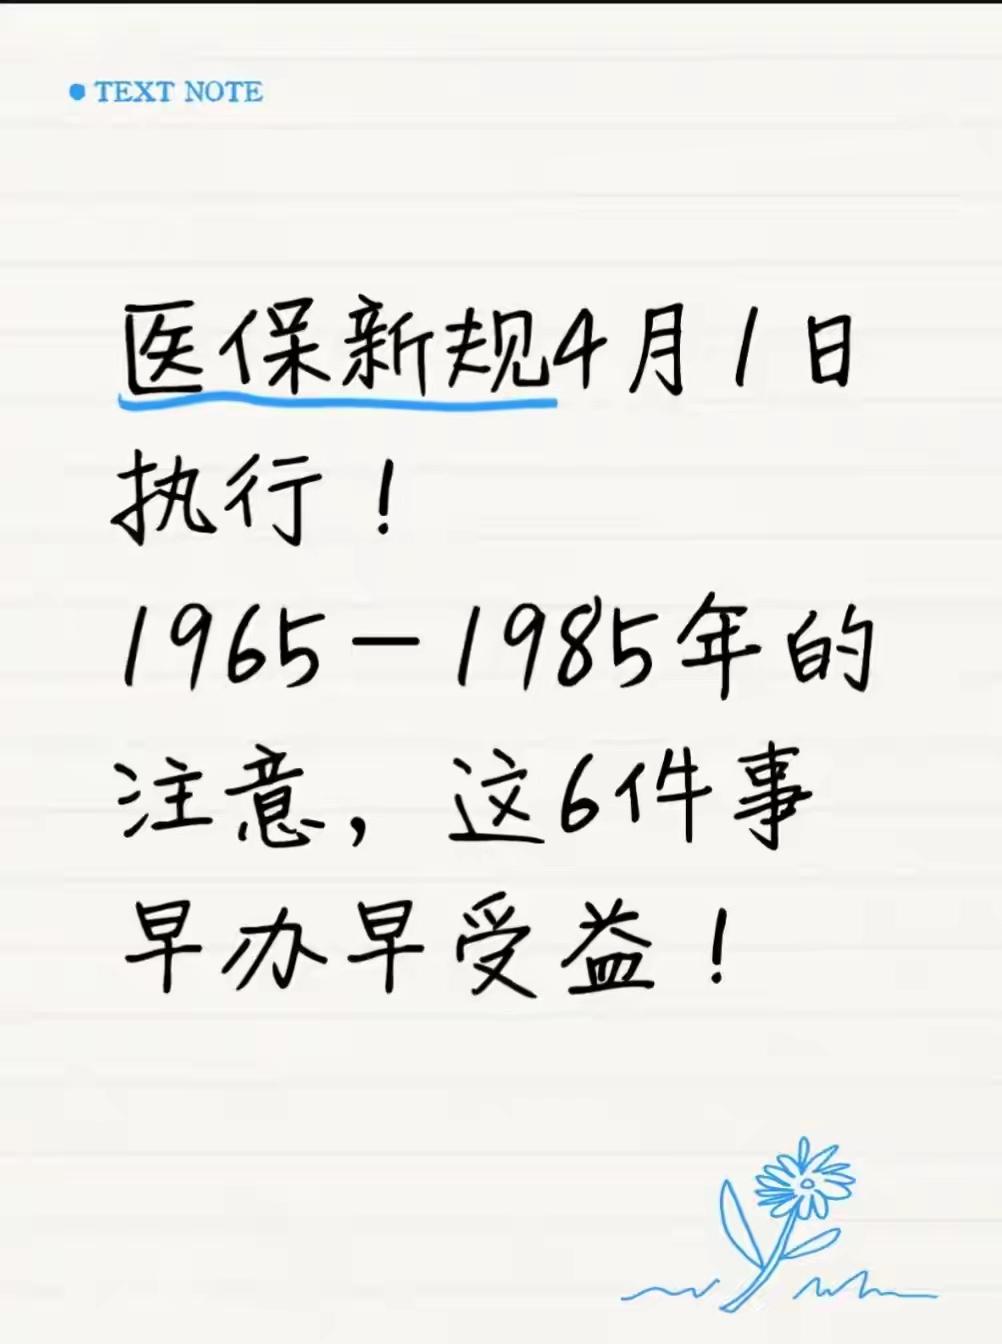 TEXT NOTE
医保新规4月1日
执行！
1965-1985年的
注意，这6件事
早办早受益！